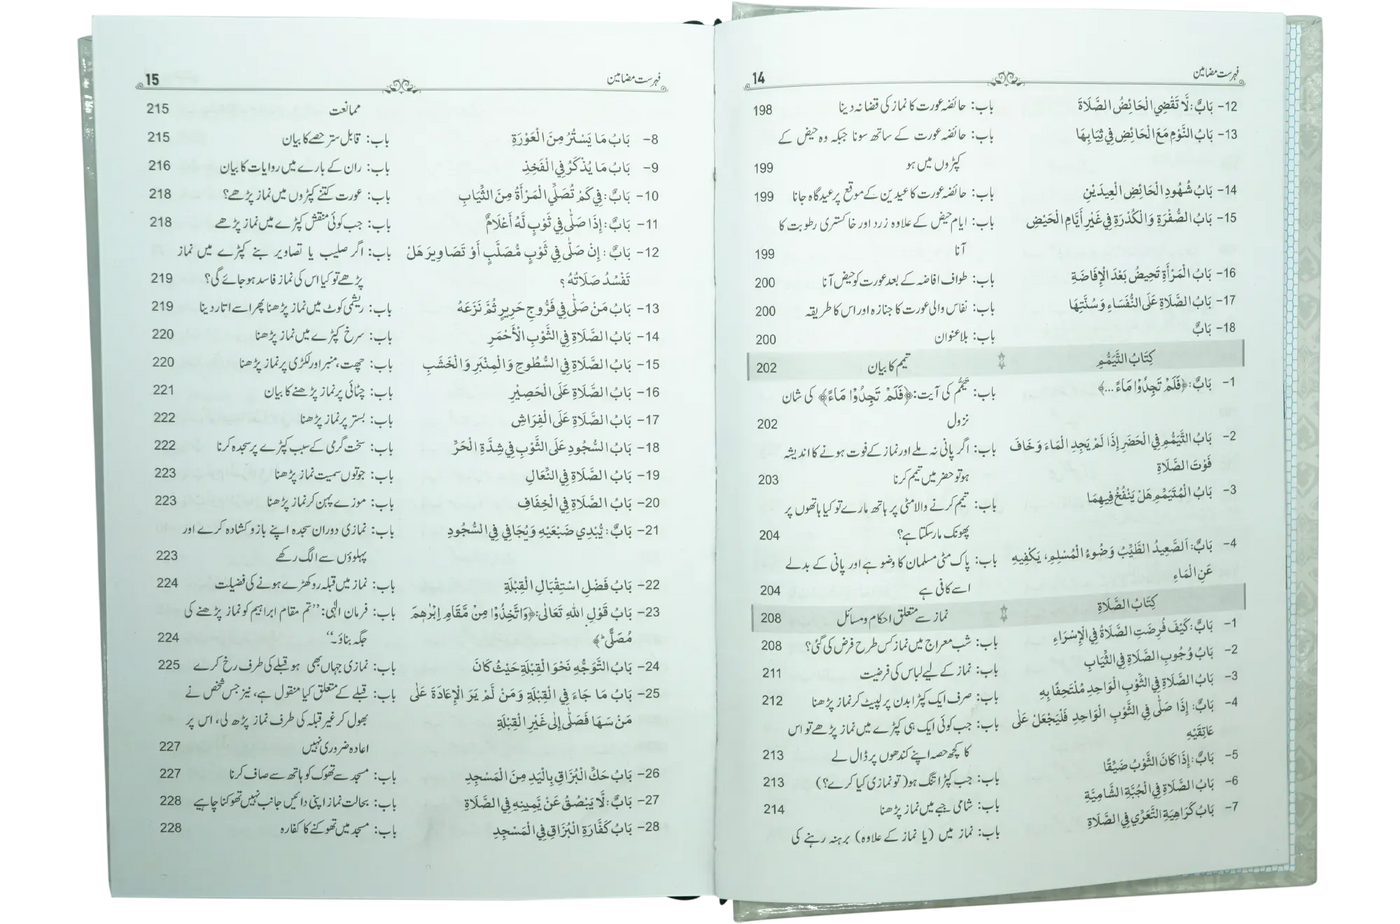 فہرست مضامین 14
12- بَابٌ: لَا تَقْضِي الْحَائِضُ الصَّلَاةَ باب: حائضہ عورت کا نماز کی قضا نہ دینا 198
13- بَابُ النَّوْمِ مَعَ الْحَائِضِ فِي ثِيَابِهَا باب: حائضہ عورت کے ساتھ سونا جبکہ وہ حیض کے
کپڑوں میں ہو 199
14- بَابُ شُهُودِ الْحَائِضِ الْعِيدَيْنِ باب: حائضہ عورت کا عیدین کے موقع پر عیدگاہ جانا 199
15- بَابُ الصُّفْرَةِ وَالْكُدْرَةِ فِي غَيْرِ أَيَّامِ الْحَيْضِ باب: ایام حیض کے علاوہ زرد اور خاکستری رطوبت کا
آنا 199
16- بَابُ الْمَرْأَةِ تَحِيضُ بَعْدَ الْإِفَاضَةِ باب: طواف افاضہ کے بعد عورت کو حیض آنا 200
17- بَابُ الصَّلَاةِ عَلَى النُّفَسَاءِ وَسُنَّتِهَا باب: نفاس والی عورت کا جنازہ اور اس کا طریقہ 200
18- بَابٌ باب: بلا عنوان 200
كِتَابُ التَّيَمُّمِ تیمم کا بیان 202
1- بَابٌ: ﴿فَلَمْ تَجِدُوْا مَاءً ...﴾ باب: تیمم کی آیت: ﴿فَلَمْ تَجِدُوْا مَاءً﴾ کی شان
نزول 202
2- بَابُ التَّيَمُّمِ فِي الْحَضَرِ إِذَا لَمْ يَجِدِ الْمَاءَ وَخَافَ باب: اگر پانی نہ ملے اور نماز کے فوت ہونے کا اندیشہ
فَوْتَ الصَّلَاةِ ہو تو حضر میں تیمم کرنا 203
3- بَابُ الْمُتَيَمِّمِ هَلْ يَنْفُخُ فِيهِمَا باب: تیمم کرنے والا مٹی پر ہاتھ مارے تو کیا ہاتھوں پر
پھونک مار سکتا ہے؟ 204
4- بَابٌ: اَلصَّعِيدُ الطَّيِّبُ وَضُوءُ الْمُسْلِمِ، يَكْفِيهِ باب: پاک مٹی مسلمان کا وضو ہے اور پانی کے بدلے
عَنِ الْمَاءِ اسے کافی ہے 204
كِتَابُ الصَّلَاةِ نماز سے متعلق احکام و مسائل 208
1- بَابٌ: كَيْفَ فُرِضَتِ الصَّلَاةُ فِي الْإِسْرَاءِ باب: شب معراج میں نماز کس طرح فرض کی گئی؟ 208
2- بَابُ وُجُوبِ الصَّلَاةِ فِي الثِّيَابِ باب: نماز کے لیے لباس کی فرضیت 211
3- بَابُ الصَّلَاةِ فِي الثَّوْبِ الْوَاحِدِ مُلْتَحِفًا بِهِ باب: صرف ایک کپڑا بدن پر لپیٹ کر نماز پڑھنا 212
4- بَابٌ: إِذَا صَلَّى فِي الثَّوْبِ الْوَاحِدِ فَلْيَجْعَلْ عَلَى باب: جب کوئی ایک ہی کپڑے میں نماز پڑھے تو اس
عَاتِقَيْهِ کا کچھ حصہ اپنے کندھوں پر ڈال لے 213
5- بَابٌ: إِذَا كَانَ الثَّوْبُ ضَيِّقًا باب: جب کپڑا تنگ ہو (تو نمازی کیا کرے؟) 213
6- بَابُ الصَّلَاةِ فِي الْجُبَّةِ الشَّامِيَّةِ باب: شامی جبے میں نماز پڑھنا 214
7- بَابُ كَرَاهِيَةِ التَّعَرِّي فِي الصَّلَاةِ باب: نماز میں (یا نماز کے علاوہ) برہنہ رہنے کی
فہرست مضامین 15
ممانعت 215
8- بَابُ مَا يَسْتُرُ مِنَ الْعَوْرَةِ باب: قابل ستر حصے کا بیان 215
9- بَابُ مَا يُذْكَرُ فِي الْفَخِذِ باب: ران کے بارے میں روایات کا بیان 216
10- بَابٌ: فِي كَمْ تُصَلِّي الْمَرْأَةُ مِنَ الثِّيَابِ باب: عورت کتنے کپڑوں میں نماز پڑھے؟ 218
11- بَابٌ: إِذَا صَلَّى فِي ثَوْبٍ لَهُ أَعْلَامٌ باب: جب کوئی منقش کپڑے میں نماز پڑھے 218
12- بَابٌ: إِنْ صَلَّى فِي ثَوْبٍ مُصَلَّبٍ أَوْ تَصَاوِيرَ هَلْ باب: اگر صلیب یا تصاویر بنے کپڑے میں نماز
تَفْسُدُ صَلَاتُهُ؟ پڑھے تو کیا اس کی نماز فاسد ہو جائے گی؟ 219
13- بَابُ مَنْ صَلَّى فِي فَرُّوجِ حَرِيرٍ ثُمَّ نَزَعَهُ باب: ریشمی کوٹ میں نماز پڑھنا پھر اسے اتار دینا 219
14- بَابُ الصَّلَاةِ فِي الثَّوْبِ الْأَحْمَرِ باب: سرخ کپڑے میں نماز پڑھنا 220
15- بَابُ الصَّلَاةِ فِي السُّطُوحِ وَالْمِنْبَرِ وَالْخَشَبِ باب: چھت، منبر اور لکڑی پر نماز پڑھنا 220
16- بَابُ الصَّلَاةِ عَلَى الْحَصِيرِ باب: چٹائی پر نماز پڑھنے کا بیان 221
17- بَابُ الصَّلَاةِ عَلَى الْفِرَاشِ باب: بستر پر نماز پڑھنا 222
18- بَابُ السُّجُودِ عَلَى الثَّوْبِ فِي شِدَّةِ الْحَرِّ باب: سخت گرمی کے سبب کپڑے پر سجدہ کرنا 222
19- بَابُ الصَّلَاةِ فِي النِّعَالِ باب: جوتوں سمیت نماز پڑھنا 223
20- بَابُ الصَّلَاةِ فِي الْخِفَافِ باب: موزے پہن کر نماز پڑھنا 223
21- بَابٌ: يُبْدِي ضَبْعَيْهِ وَيُجَافِي فِي السُّجُودِ باب: نمازی دوران سجدہ اپنے بازو کشادہ کرے اور
پہلوؤں سے الگ رکھے 223
22- بَابُ فَضْلِ اسْتِقْبَالِ الْقِبْلَةِ باب: نماز میں قبلہ رو کھڑے ہونے کی فضیلت 224
23- بَابُ قَوْلِ اللهِ تَعَالَى: ﴿وَاتَّخِذُوا مِنْ مَّقَامِ إِبْرٰهِمَ باب: فرمان الٰہی: ’’تم مقام ابراہیم کو نماز پڑھنے کی
مُصَلًّى﴾ جگہ بناؤ۔‘‘ 224
24- بَابُ التَّوَجُّهِ نَحْوَ الْقِبْلَةِ حَيْثُ كَانَ باب: نمازی جہاں بھی ہو قبلے کی طرف رخ کرے 225
25- بَابُ مَا جَاءَ فِي الْقِبْلَةِ وَمَنْ لَمْ يَرَ الْإِعَادَةَ عَلَى باب: قبلے کے متعلق کیا منقول ہے، نیز جس شخص نے
مَنْ سَهَا فَصَلَّى إِلَى غَيْرِ الْقِبْلَةِ بھول کر غیر قبلہ کی طرف نماز پڑھ لی، اس پر
اعادہ ضروری نہیں 227
26- بَابُ حَكِّ الْبُزَاقِ بِالْيَدِ مِنَ الْمَسْجِدِ باب: مسجد سے تھوک کو ہاتھ سے صاف کرنا 227
27- بَابٌ: لَا يَبْصُقْ عَنْ يَمِينِهِ فِي الصَّلَاةِ باب: بحالت نماز اپنی دائیں جانب نہیں تھوکنا چاہیے 228
28- بَابُ كَفَّارَةِ الْبُزَاقِ فِي الْمَسْجِدِ باب: مسجد میں تھوکنے کا کفارہ 228